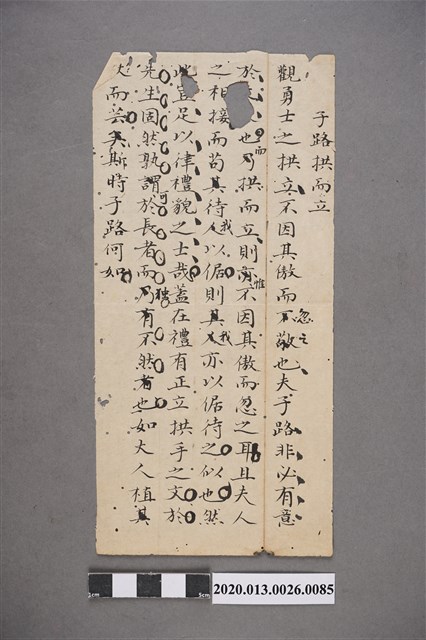 子路拱而立
觀勇士之拱立不因其傲而不敬也夫子路非必有意
忽之
於也乃拱而立則不因其傲而忽之耳且夫人
而
惟
之相接而苟其待人以倨則其人亦以倨待之似也然
我
我
此豈足以律禮貌之士哉蓋在禮有正立拱手之文於
先生固然孰謂於長者而乃有不然者也如夫人植其
可
獨
杖而芸矣斯時子路何如
0cm
5cm
2020.013.0026.0085